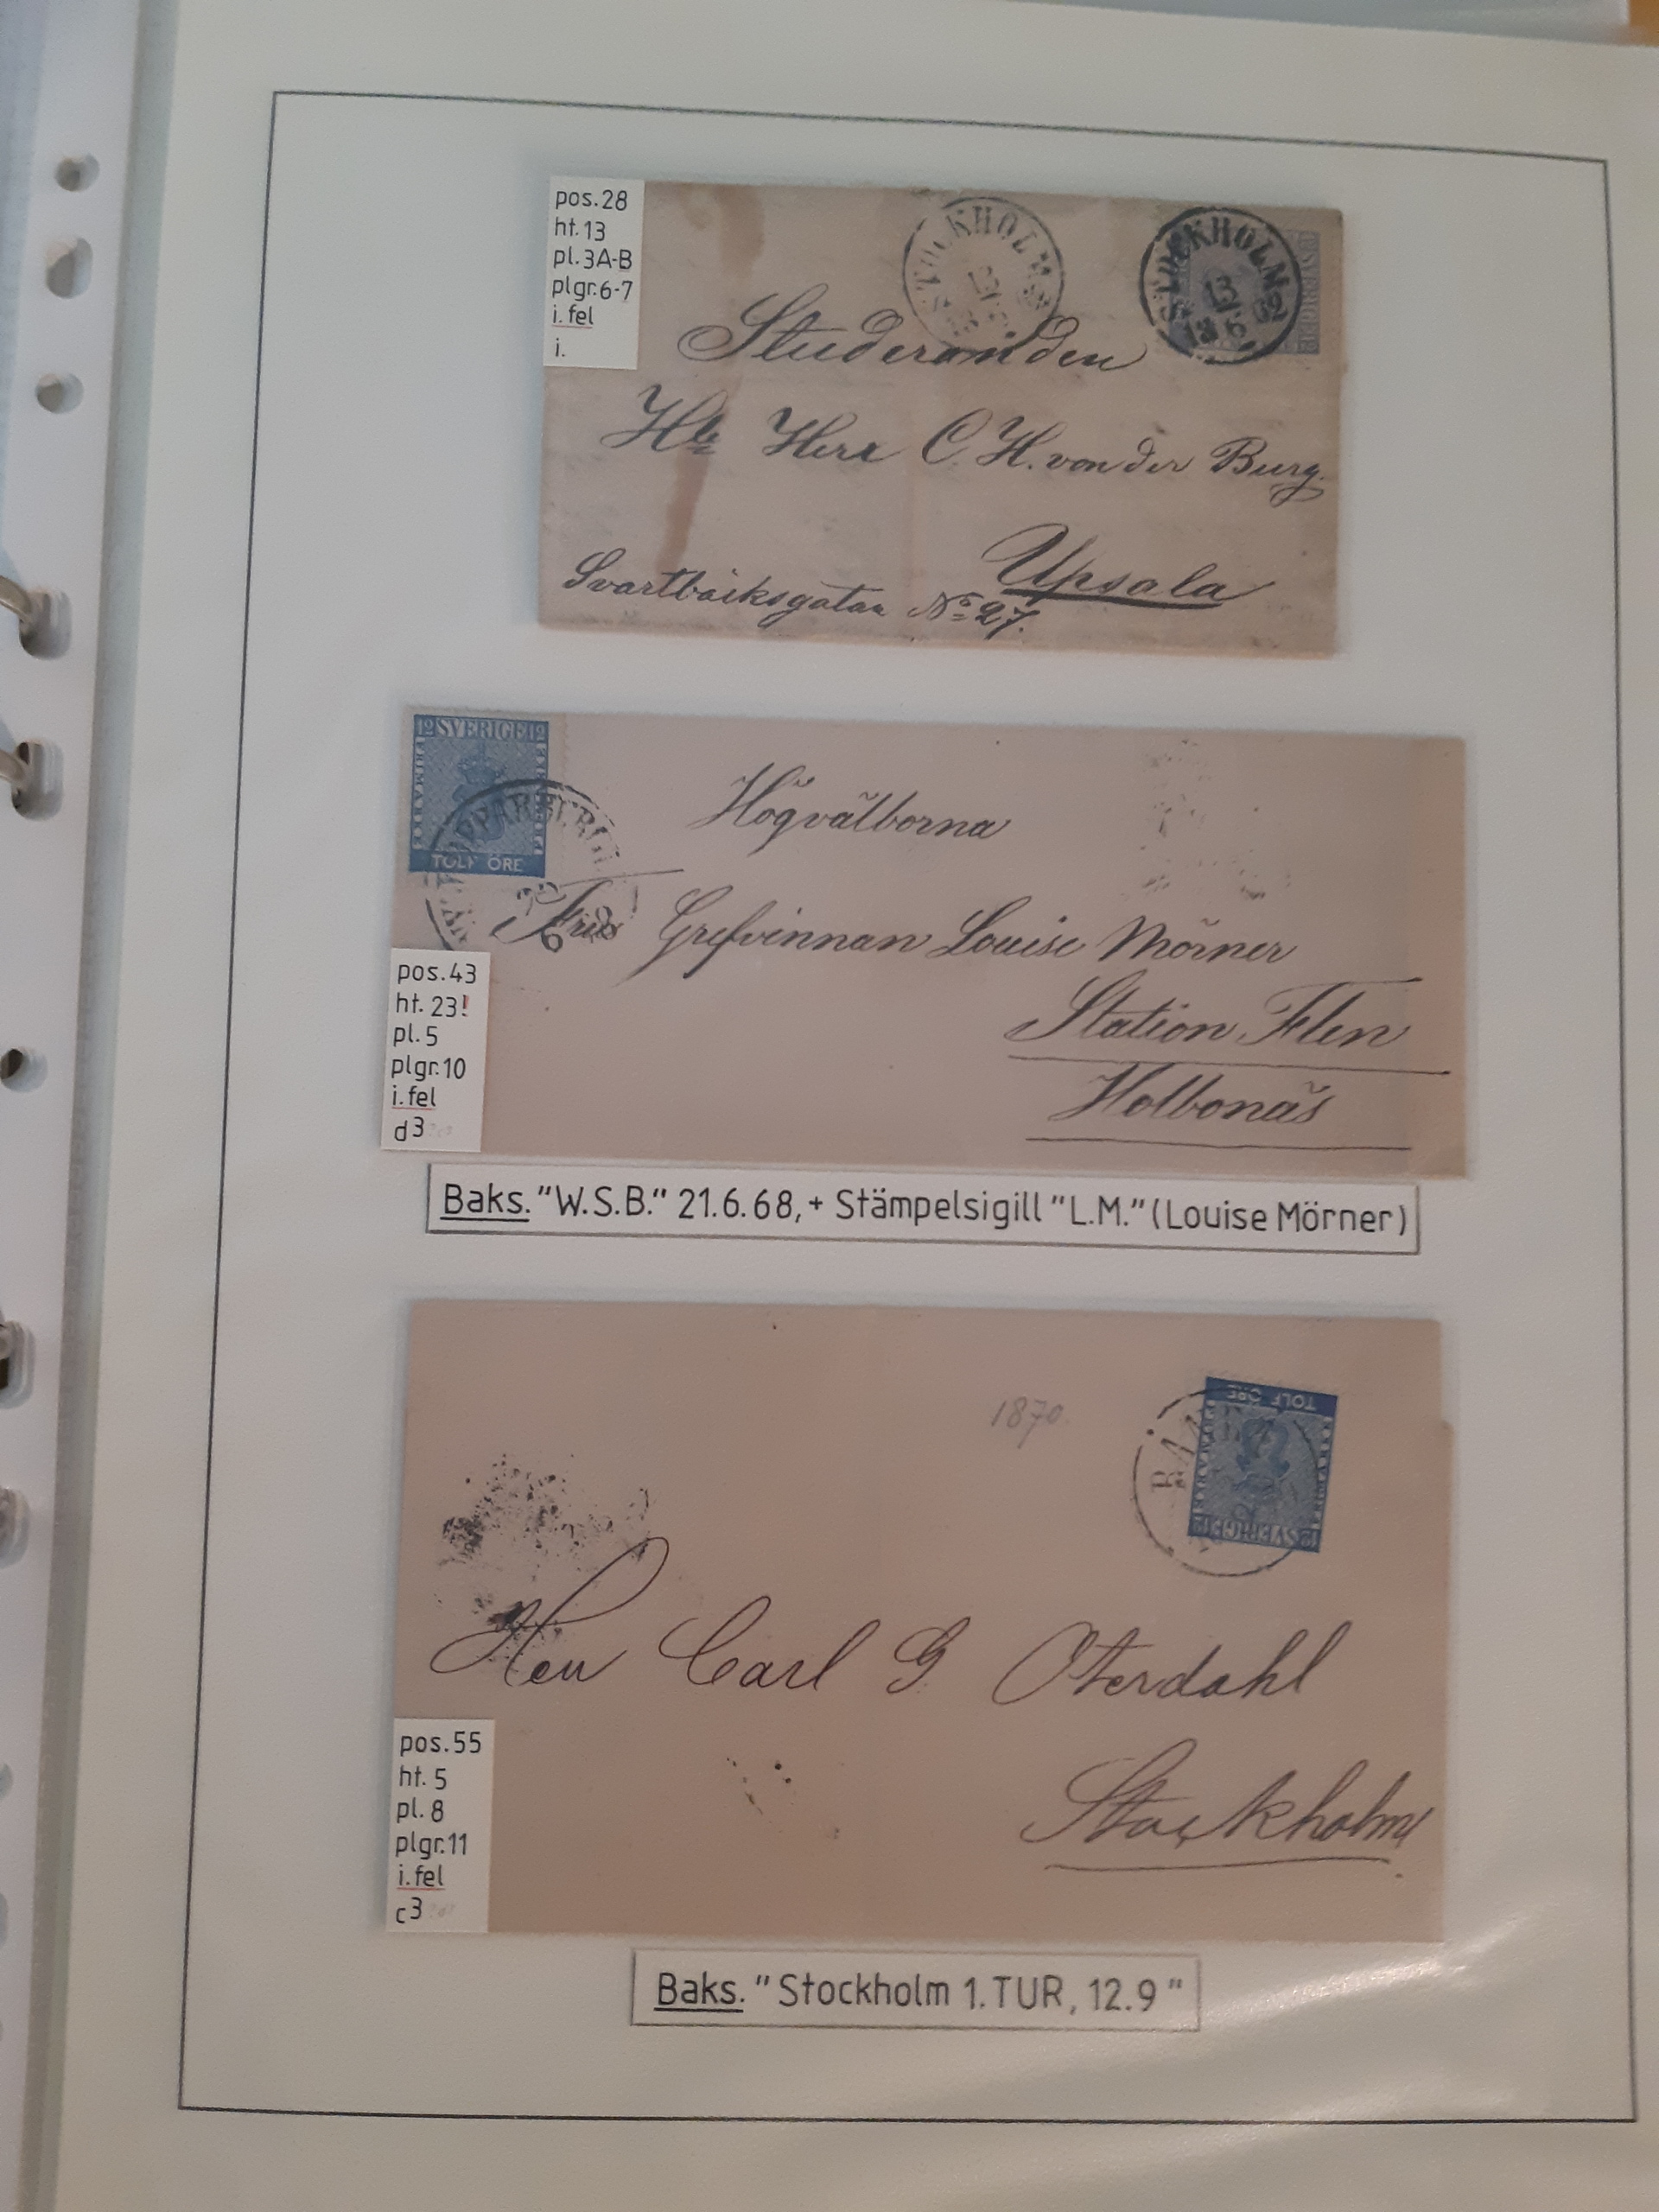 pos.28
ht.13
pl.3A-B
plgr.6-7
i.fel
i.
STOCKHOLM
STOCKHOLM
13
6
62
Studeranden
Herr C. H. von der Burg.
Upsala
Svartbäcksgatan No 27.
12 SVERIGE 12
FRIMÄRKE
TOLF ÖRE
KOPPARBERG
6
Högvälborna
Grefvinnan Louise Mörner
Station Flen
Holbonäs
pos.43
ht.23!
pl.5
plgr.10
i.fel
d3
Baks. "W.S.B." 21.6.68,+ Stämpelsigill "L.M." (Louise Mörner)
1870.
TOLF ÖRE
SVERIGE
Herr Carl G Oterdahl
Stockholm
pos.55
ht.5
pl.8
plgr.11
i.fel
c3
Baks. "Stockholm 1.TUR, 12.9"